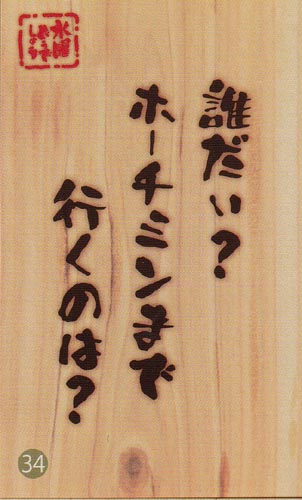 誰だい？
ホーチミンまで
行くのは？
水曜
どうでしょう
34